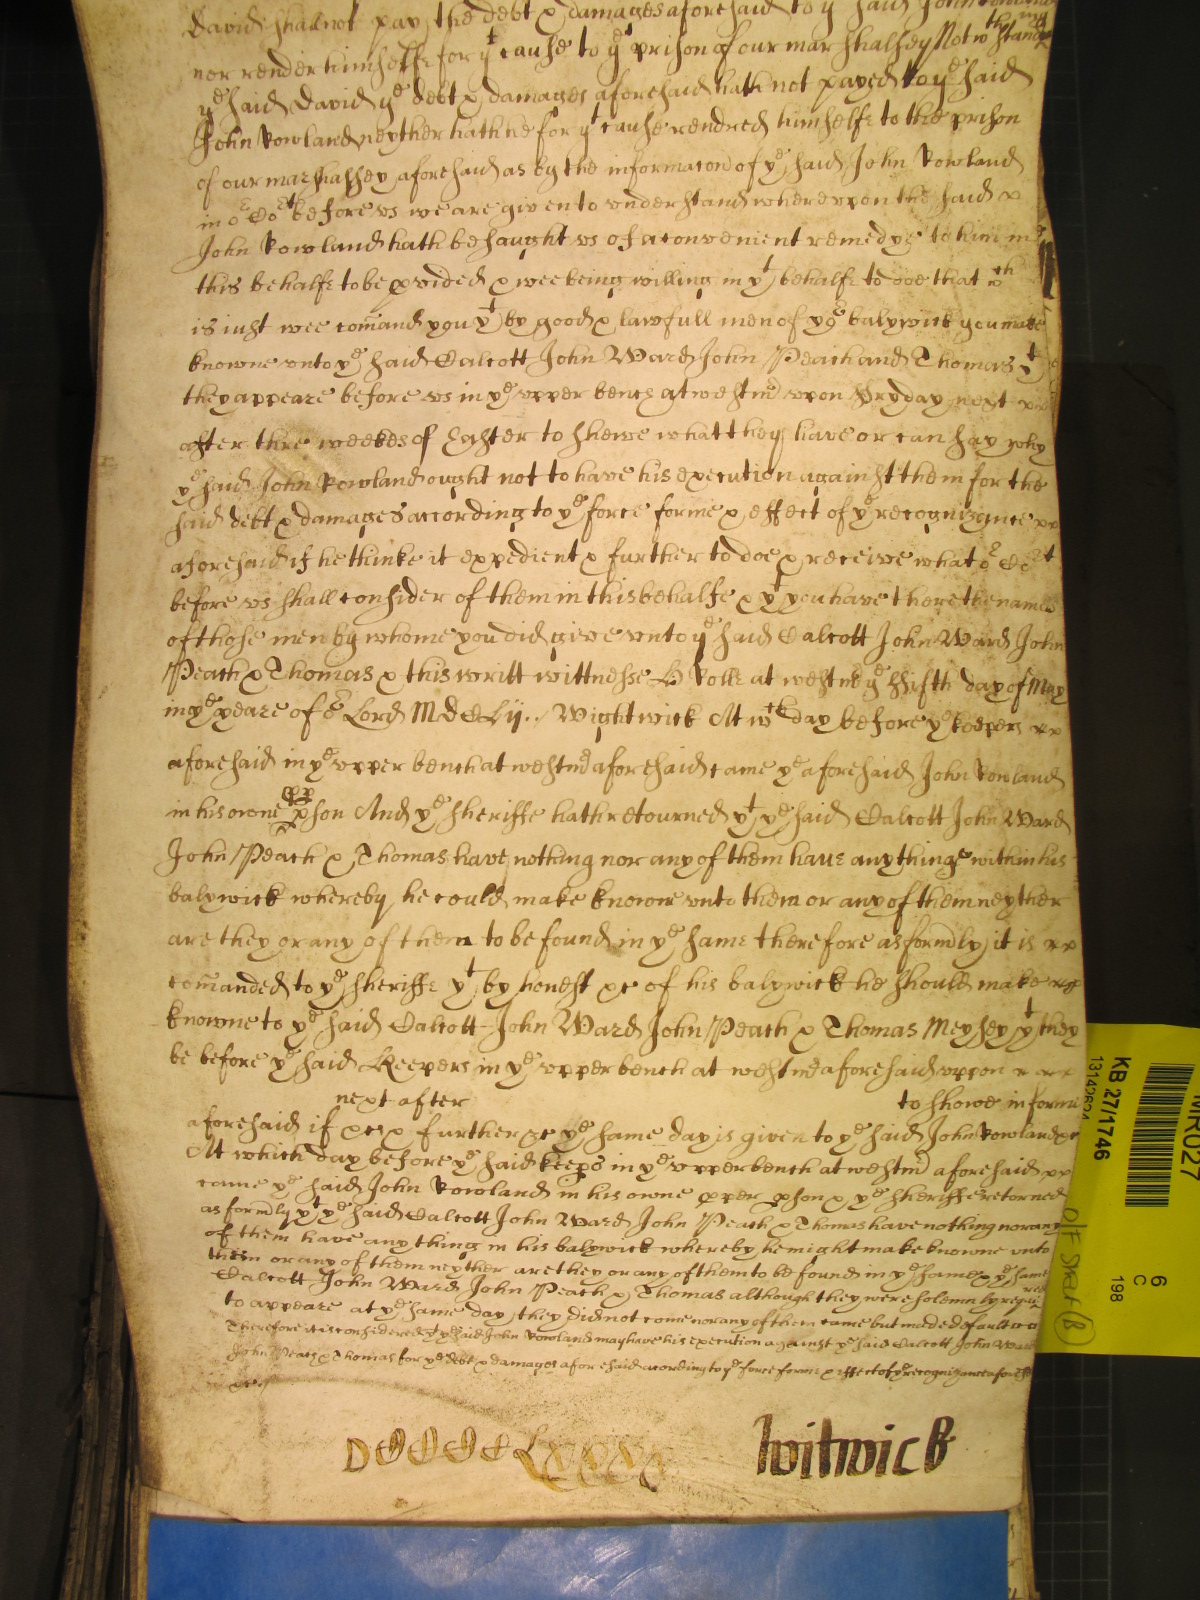 David shall not pay the debt & damages aforesaid to ye said John Rowland
nor render himselfe for yt cause to ye prison of our marshalsey Notwthstanding
ye said David ye debt & damages aforesaid hath not payed to ye said
John Rowland neyther hath he for yt cause rendred himselfe to the prison
of our marshalsey aforesaid as by the informacon of ye said John Rowland
in or Cort before us we are given to understand whereupon the said
John Rowland hath besought us of a convenient remedye to him in
this behalfe to be pvided & wee being willing in yt behalfe to doe that wch
is iust wee comand you yt by good & lawfull men of yor balywick you make
knowne unto ye said Calcott John Ward John Peach and Thomas yt
they appeare before us in ye upper bench at westmr upon Fryday next
after three weekes of Easter to shewe what they have or can say why
ye said John Rowland ought not to have his execution against them for the
said debt & damages according to ye force forme & effect of ye recognizance
aforesaid if he thinke it expedient & further to doe & receive what or Cort
before us shall consider of them in this behalfe & yt you have there the names
of those men by whome you did give unto ye said Calcott John Ward John
Peach & Thomas & this writt wittnesse H Rolle at westmr ye ffifth day of May
in ye yeare of or Lord MDCLij.. Wightwick At wch day before ye keepers
aforesaid in ye upper bench at westmr aforesaid came ye aforesaid John Rowland
in his owne pp pson And ye sheriffe hath retourned yt ye said Calcott John Ward
John Peach & Thomas have nothing nor any of them have any thinge within his
balywick whereby he could make knowne unto them or any of them neyther
are they or any of them to be found in ye same therefore as formrly it is
comanded to ye sheriffe yt by honest &c of his balywick he should make
knowne to ye said Calcott John Ward John Peach & Thomas Meysey yt they
be before ye said Keepers in ye upper bench at westmr aforesaid uppon
next after to shewe in forme
aforesaid if &c & further &c ye same day is given to ye said John Rowland &c
At which day before ye said keeps in ye upper bench at westmr aforesaid
came ye said John Rowland in his owne pper pson & ye sheriffe retorned
as formrly yt ye said Calcott John Ward John Peach & Thomas have nothing nor any
of them have any thing in his balywick whereby he might make knowne unto
them or any of them neyther are they or any of them to be found in ye same & ye same
Calcott John Ward John Peach & Thomas although they were solemnly requi
red
to appeare at ye same day they did not come nor any of them came but made default
Therefore it is considered yt ye said John Rowland may have his execution against ye said Calcott John Ward
John Peach & Thomas for ye debt & damages aforesaid according to ye force forme & effect of ye recognizance aforesd
&c
Witwick
MR027
KB 27/1746
13142624
6
C
198